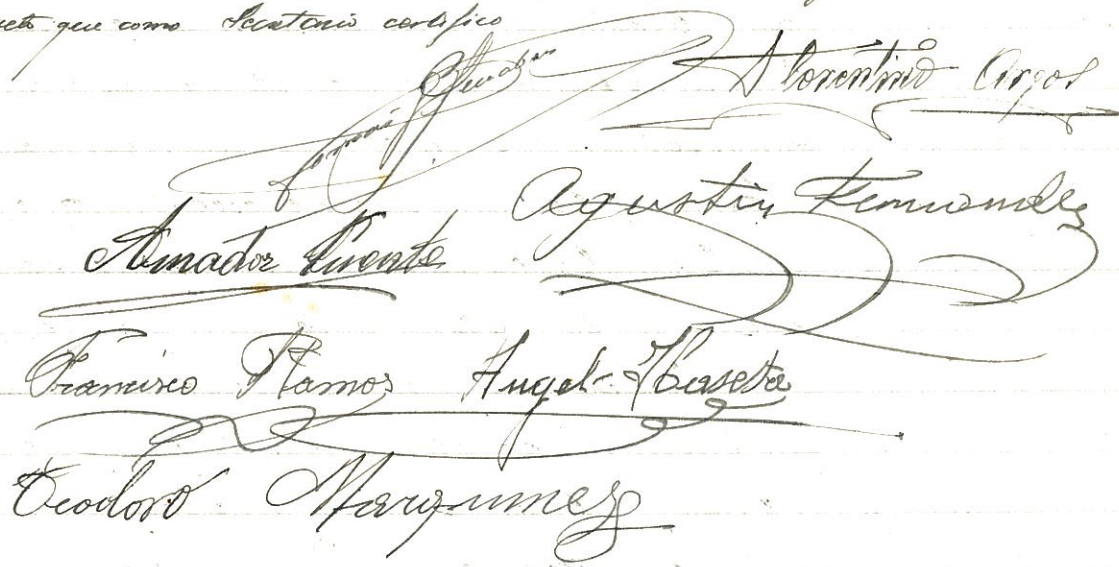 que como Secretario certifico
Florentino Argos
Agustin Fernandez
Amador
Francisco Ramos Angel Haseta
Teodoro Marquinez